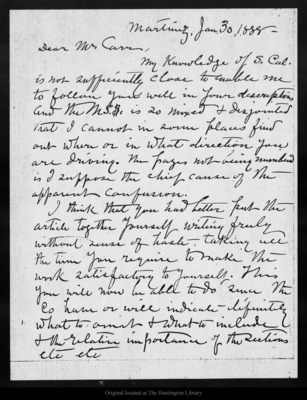 Martinez, Jan 30, 1888-
Dear Mrs Carr,
My knowledge of S. Cal.
is not sufficiently close to enable me
to follow you well in your description
And the M.S.S. is so mixed & disjointed
that I cannot in some places find
out where or in what direction you
are driving. The pages not being numbered
is I suppose the chief cause of the
apparent confusion.
I think that you had better put the
article together yourself writing freely
without sense of haste - taking all
the time you require to make the
work satisfactory to yourself. This
you will now be able to do since the
Co have or will indicate definitely
what to omit & what to include
& the relative importance of the sections
etc etc
Original located at The Huntington Library